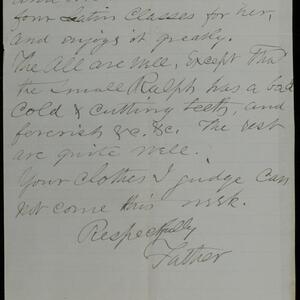 four Latin Classes for her,
and enjoys it greatly.
The All are well, except that
the small Ralph has a bad
cold & cutting teeth, and
feverish &c. &c. The rest
are quite well.
Your clothes I judge can
not come this week.
Respectfully
Father